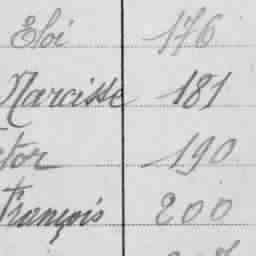 Eloi 176
Narcisse 181
ctor 190
François 200